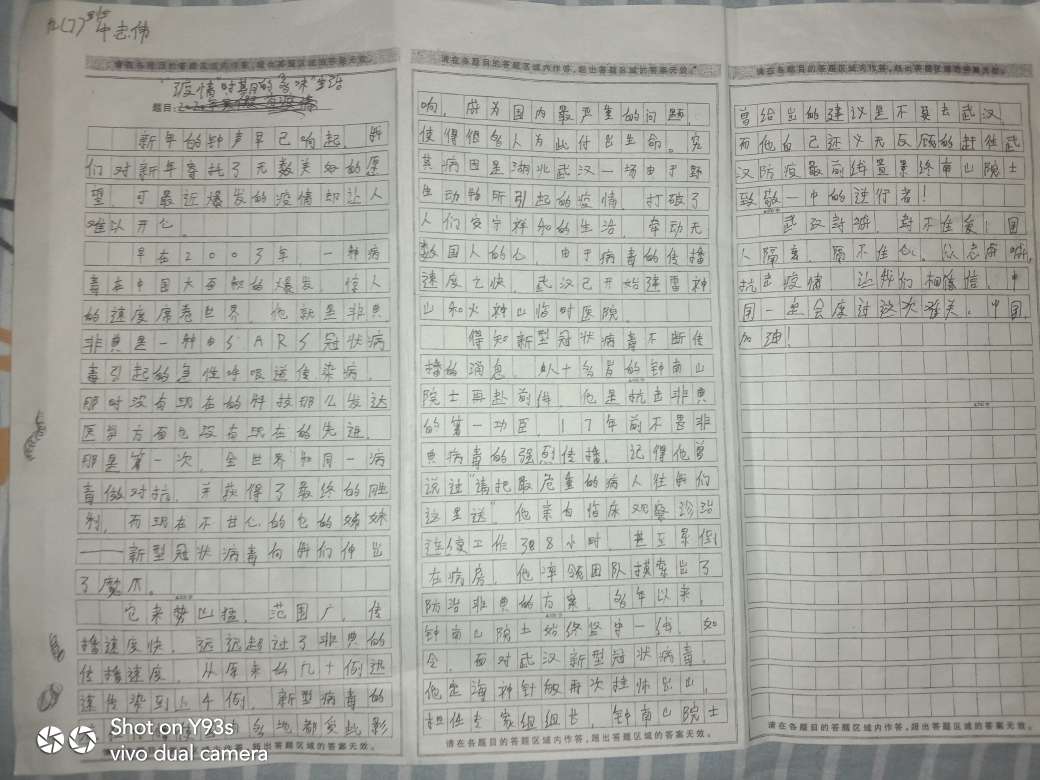 九(7)
请在各题目的答题区域内作答，超出答题区域的答案无效。
"疫情"时期的"多味"生活
题目：
新年的钟声早已响起，我
们对新年寄托了无数美好的愿
望，可最近爆发的疫情却让人
难以开心。
早在2003年，一种病
毒在中国大面积的爆发，惊人
的速度席卷世界，他就是非典
非典是一种由SARS冠状病
毒引起的急性呼吸道传染病，
那时没有现在的科技那么发达
医学方面也没有现在的先进，
那是第一次，全世界和同一病
毒做对抗，并获得了最终的胜
利，而现在不甘心的它的姊妹
——新型冠状病毒向我们伸出
了魔爪。
它来势凶猛，范围广，传
播速度快，远远超过了非典的
传播速度，从原来的几十例迅
速传染到上千例，新型病毒的
各地都受此影
请在各题目的答题区域内作答，超出答题区域的答案无效。
请在各题目的答题区域内作答，超出答题区域的答案无效。
响，成为国内最严重的问题，
使得很多人为此付出生命。究
其病因是湖北武汉一场由于野
生动物所引起的疫情，打破了
人们安宁祥和的生活，牵动无
数国人的心，由于病毒的传播
速度之快，武汉已开始建雷神
山和火神山临时医院。
得知新型冠状病毒不断传
播的消息，八十多岁的钟南山
院士再赴前线，他是抗击非典
的第一功臣，17年前不畏非
典病毒的强烈传播，记得他曾
说过"请把最危重的病人往我们
这里送"他亲自临床观察诊治
连续工作38小时，甚至累倒
在病房，他率领团队摸索出了
防治非典的方案，多年以来，
钟南山院士始终坚守一线，如
今，面对武汉新型冠状病毒！
他定海神针般再次挂帅出山，
担任专家组组长，钟南山院士
请在各题目的答题区域内作答，超出答题区域的答案无效。
请在各题目的答题区域内作答，超出答题区域的答案无效。
曾给出的建议是不要去武汉，
而他自己还义无反顾的赶往武
汉防疫最前线置累终南山院士
致敬一中的逆行者！
武汉封城，封不住爱！国
人隔离，隔不住心。众志成城，
抗击疫情，让我们相信，中
国一定会度过这次难关，中国，
加油！
请在各题目的答题区域内作答，超出答题区域的答案无效。
Shot on Y93s
vivo dual camera